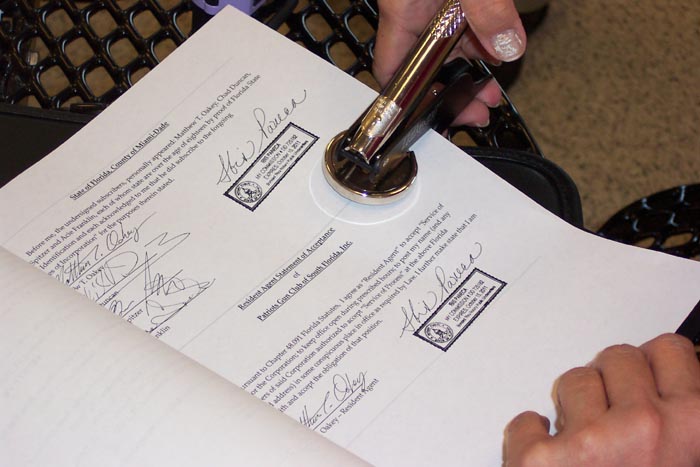 State of Florida, County of Miami Dade
Before me, the undersigned subscribers, personally appeared, Matthew T. Oakey, Chad Duncan,
Spitzer and Acie Franklin, each of whom state are over the age of eighteen by proof of Florida State
Identification and each acknowledged to me that he did subscribe to the forgoing
es of Incorporation" for the purposes therein stated.
T. Oakey
Oakey
Duncan
Spitzer
nklin
IRIS PAREEA
EXPIRES: October 15, 2011
Resident Agent Statement of Acceptance
of
Patriot Gun Club of South Florida, Inc.
rsuant to Chapter 48.091 Florida Statutes, I agree as "Resident Agent" to accept "Service of
or the Corporation; to keep office open during prescribed hours; to post my name (and any
ers of said Corporation authorized to accept "Service of Process" at the above Florida
d address) in some conspicuous place in office as required by Law. I further make state that I am
th and accept the obligation of that position.
T. Oakey
Oakey – Resident Agent
EXPIRES: October 15, 2011